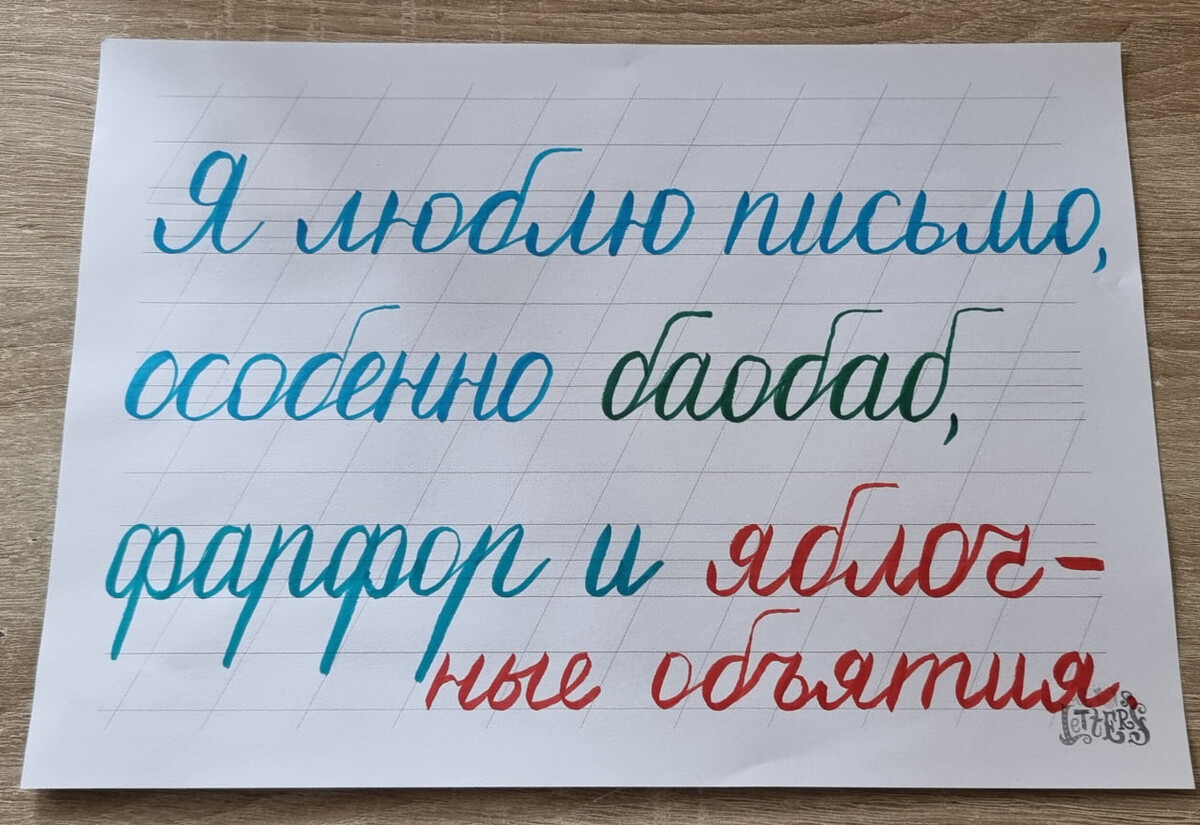 Я люблю письмо,
особенно баобаб,
фарфор и яблоч-
ные объятия.
LETTER'S